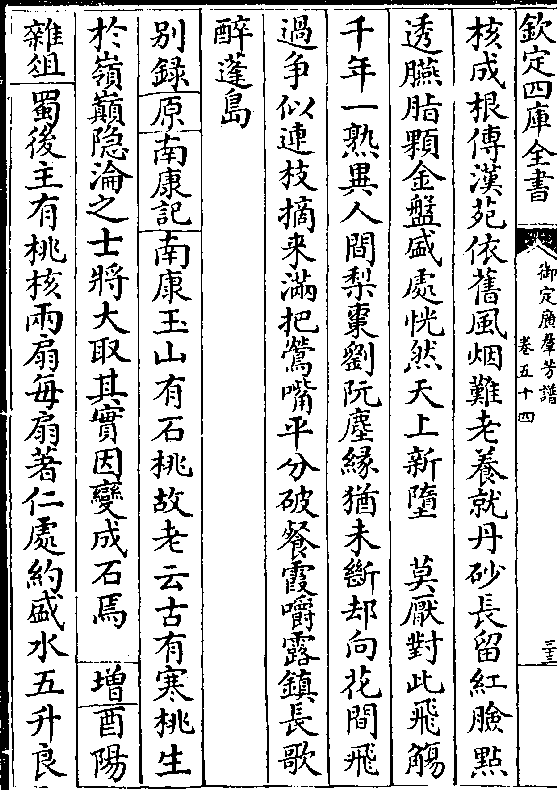 欽定四庫全書
御定廣羣芳譜
卷五十四
三
核成根傳漢苑依舊風烟難老養就丹砂長留紅臉點
透臙脂顆金盤盛處恍然天上新墮　莫厭對此飛觴
千年一熟異人間梨棗劉阮塵緣猶未斷却向花間飛
過争似連枝摘来滿把鶯嘴平分破餐霞嚼露鎮長歌
醉蓬島
别録原南康記南康玉山有石桃故老云古有寒桃生
於嶺巔隐淪之士將大取其實因變成石焉　增酉陽
雜俎蜀後主有桃核兩扇每扇著仁處約盛水五升良